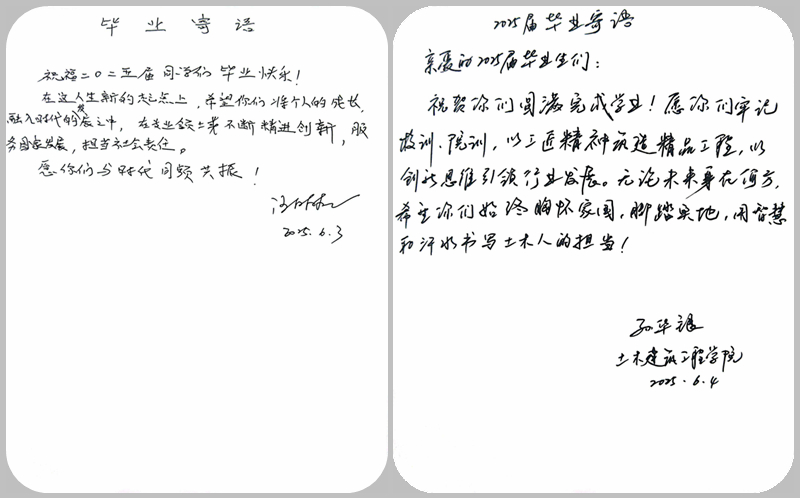 毕业寄语
祝福二〇二五届同学们毕业快乐！
在这人生新的起点上，希望你们将个人的成长，
融入时代的发展之中，在专业领域不断精进创新，服
务国家发展，担当社会责任。
愿你们与时代同频共振！
2025.6.3
2025届毕业寄语
亲爱的2025届毕业生们：
祝贺你们圆满完成学业！愿你们牢记
校训、院训，以工匠精神筑造精品工程，以
创新思维引领行业发展。无论未来身在何方，
希望你们始终胸怀家国，脚踏实地，用智慧
和汗水书写土木人的担当！
孙华银
土木建筑工程学院
2025.6.4